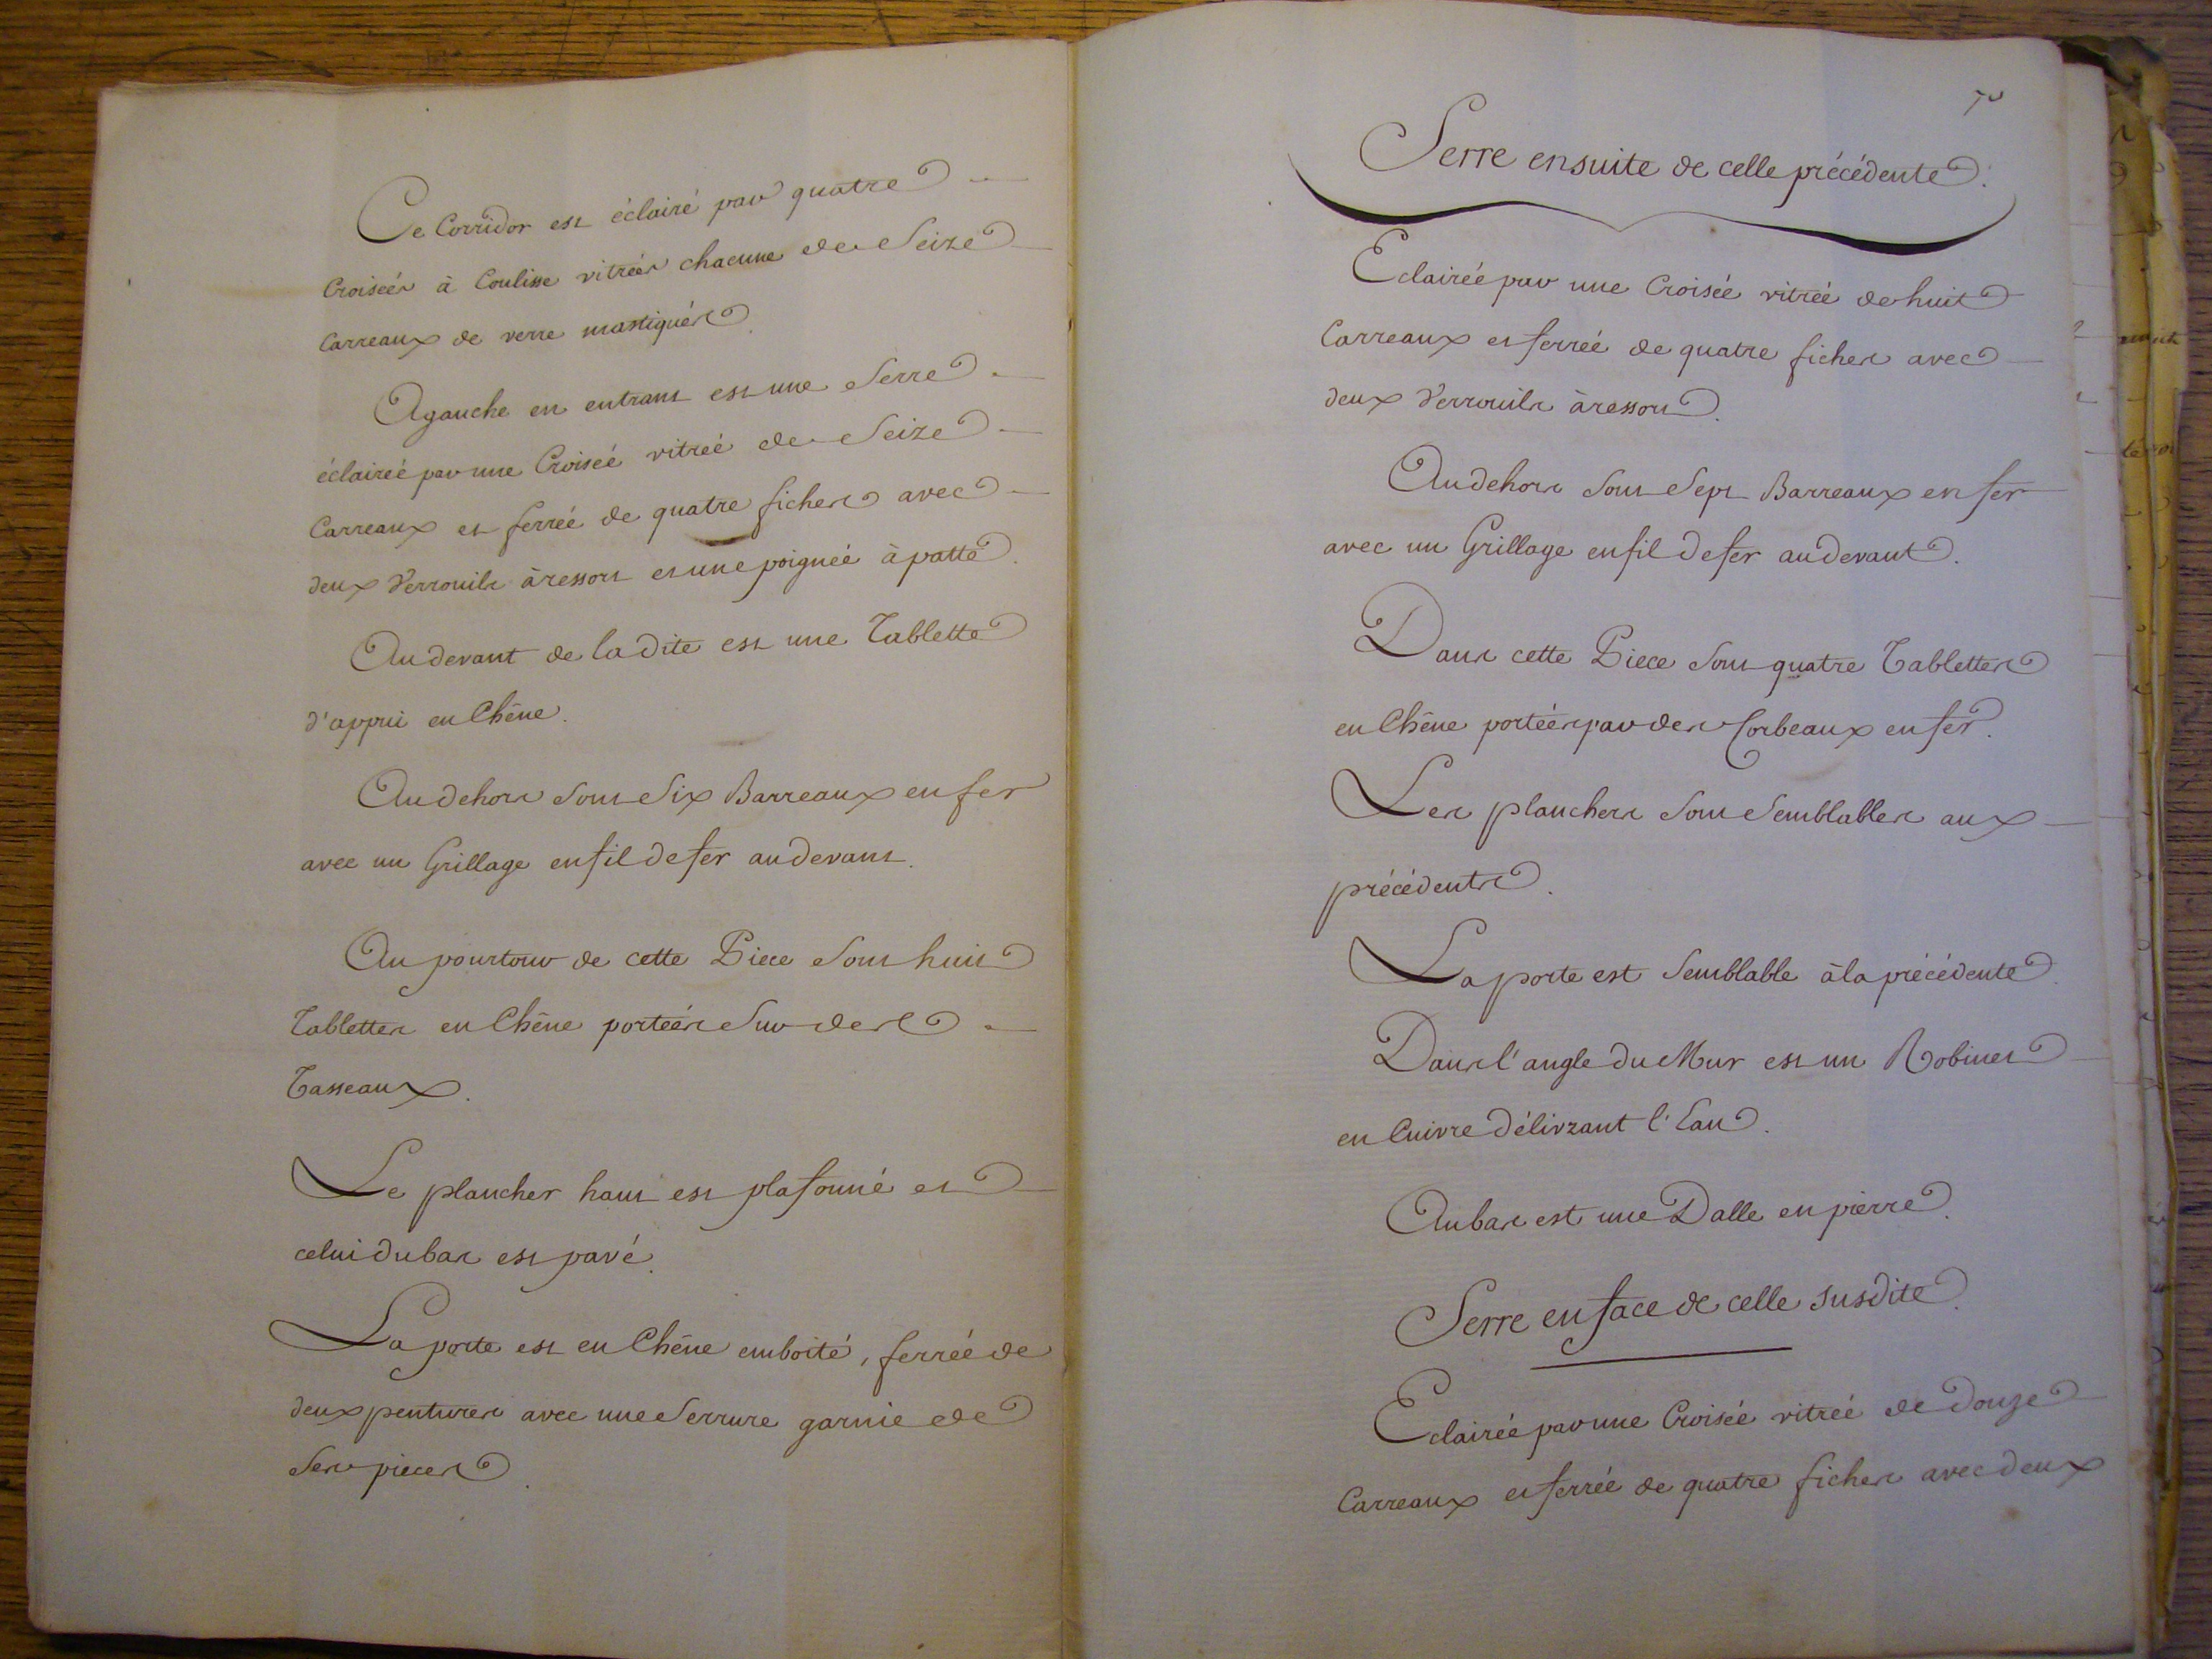 Ce Corridor est éclairé par quatre
Croisées à Coulisse vitrées chacune de Seize
Carreaux de verre mastiqués.
A gauche en entrant est une Serre
éclairée par une Croisée vitrée de Seize
Carreaux et ferrée de quatre fiches avec
deux Verrouils à ressort et une poignée à patte.
Au devant de la dite est une Tablette
d'appui en Chêne.
Au dehors sont Six Barreaux en fer
avec un Grillage en fil de fer au devant.
Au pourtour de cette Piece sont huit
Tablettes en Chêne portées Sur des
Tasseaux.
Le plancher haut est plafonné et
celui du bas est pavé.
La porte est en Chêne emboité, ferrée de
deux pentures avec une Serrure garnie de
Ses pieces.
Serre ensuite de celle précédente.
Eclairée par une Croisée vitrée de huit
Carreaux et ferrée de quatre fiches avec
deux Verrouils à ressort.
Au dehors sont Sept Barreaux en fer
avec un Grillage en fil de fer au devant.
Dans cette Piece sont quatre Tablettes
en Chêne portées par des Corbeaux en fer.
Les planchers sont Semblables aux
précédents.
La porte est Semblable à la précédente.
Dans l'angle du Mur est un Robinet
en Cuivre délivrant l'Eau.
Au bas est une Dalle en pierre.
Serre en face de celle susdite.
Eclairée par une Croisée vitrée de Douze
Carreaux et ferrée de quatre fiches avec deux